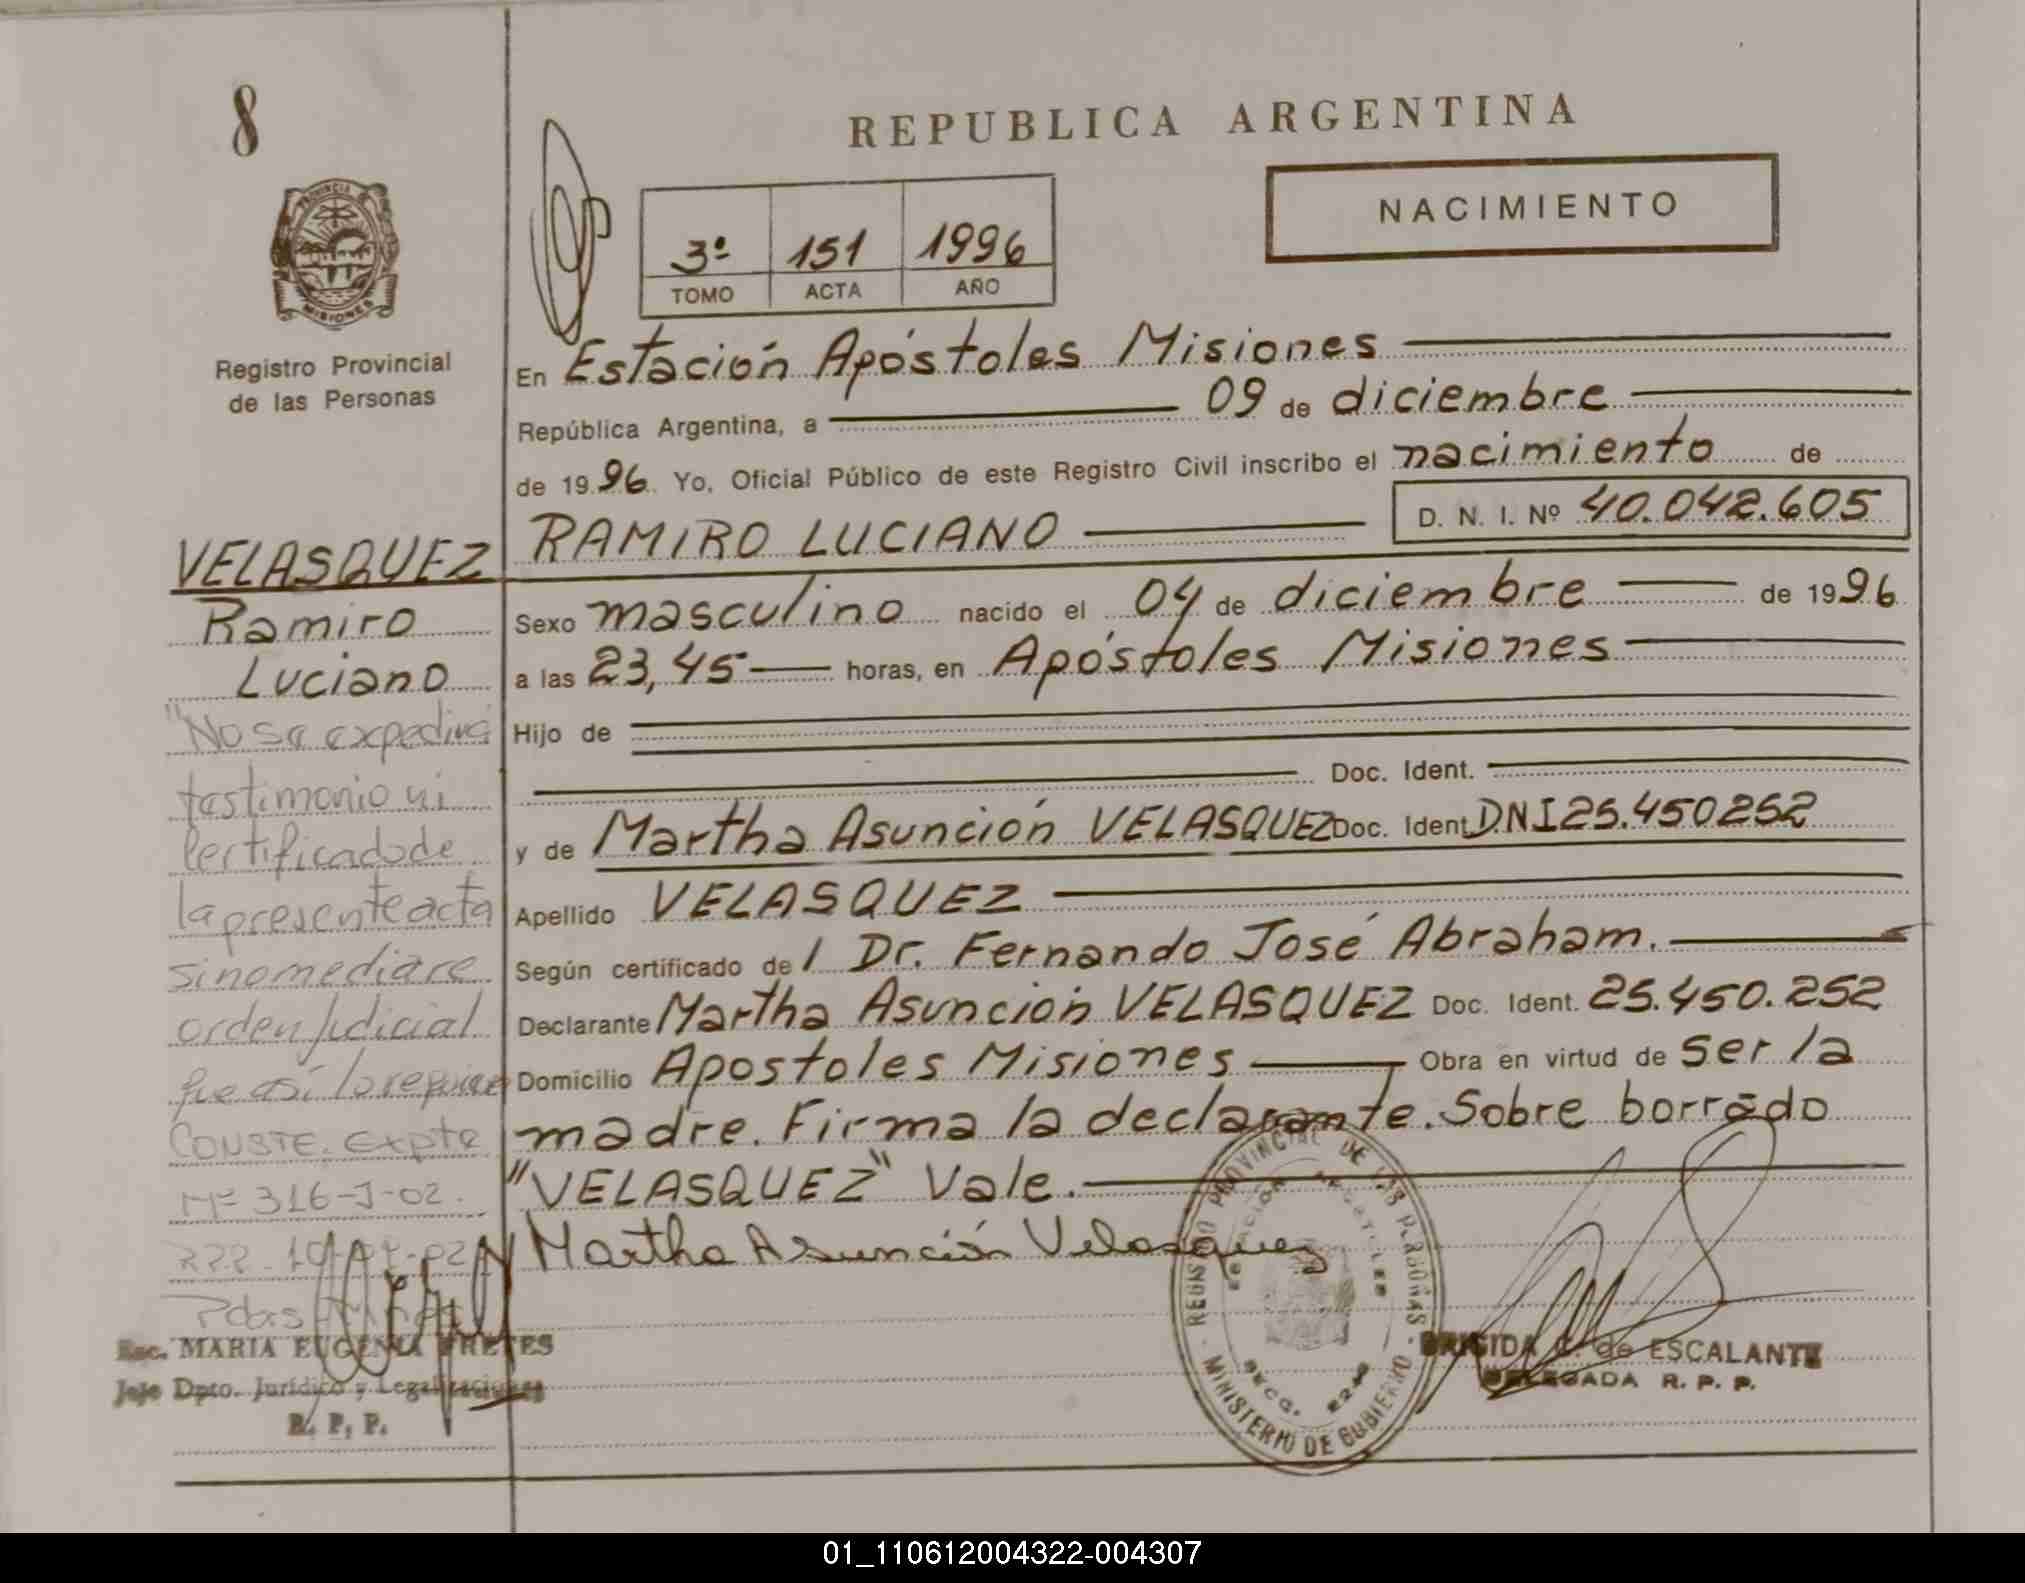 8
REPUBLICA ARGENTINA
NACIMIENTO
3º 151 1996
TOMO ACTA AÑO
PROVINCIA
MISIONES
Registro Provincial
de las Personas
En Estación Apóstoles Misiones
República Argentina, a 09 de diciembre
de 1996. Yo, Oficial Público de este Registro Civil inscribo el nacimiento de
RAMIRO LUCIANO D. N. I. Nº 40.042.605
Sexo masculino nacido el 04 de diciembre de 1996
a las 23,45 horas, en Apóstoles Misiones
Hijo de
Doc. Ident.
y de Martha Asunción VELASQUEZ Doc. Ident. DNI 25.450252
Apellido VELASQUEZ
Según certificado de l Dr. Fernando José Abraham.
Declarante Martha Asunción VELASQUEZ Doc. Ident. 25.450.252
Domicilio Apostoles Misiones Obra en virtud de ser la
madre. Firma la declarante. Sobre borrado
"VELASQUEZ" Vale.
Martha Asunción Velasquez
VELASQUEZ
Ramiro
Luciano
"No se expedirá
testimonio ni
certificado de
la presente acta
si no mediare
orden judicial
que así lo requiera
CONSTE. Expte
Nº 316-J-02.
Pdas
Esc. MARIA EUGENIA FRETES
Jefe Dpto. Jurídico y Legalizaciones
R. P. P.
REGISTRO PROVINCIAL DE LAS PERSONAS
MINISTERIO DE GOBIERNO
BRIGIDA C. de ESCALANTE
DELEGADA R. P. P.
01_110612004322-004307